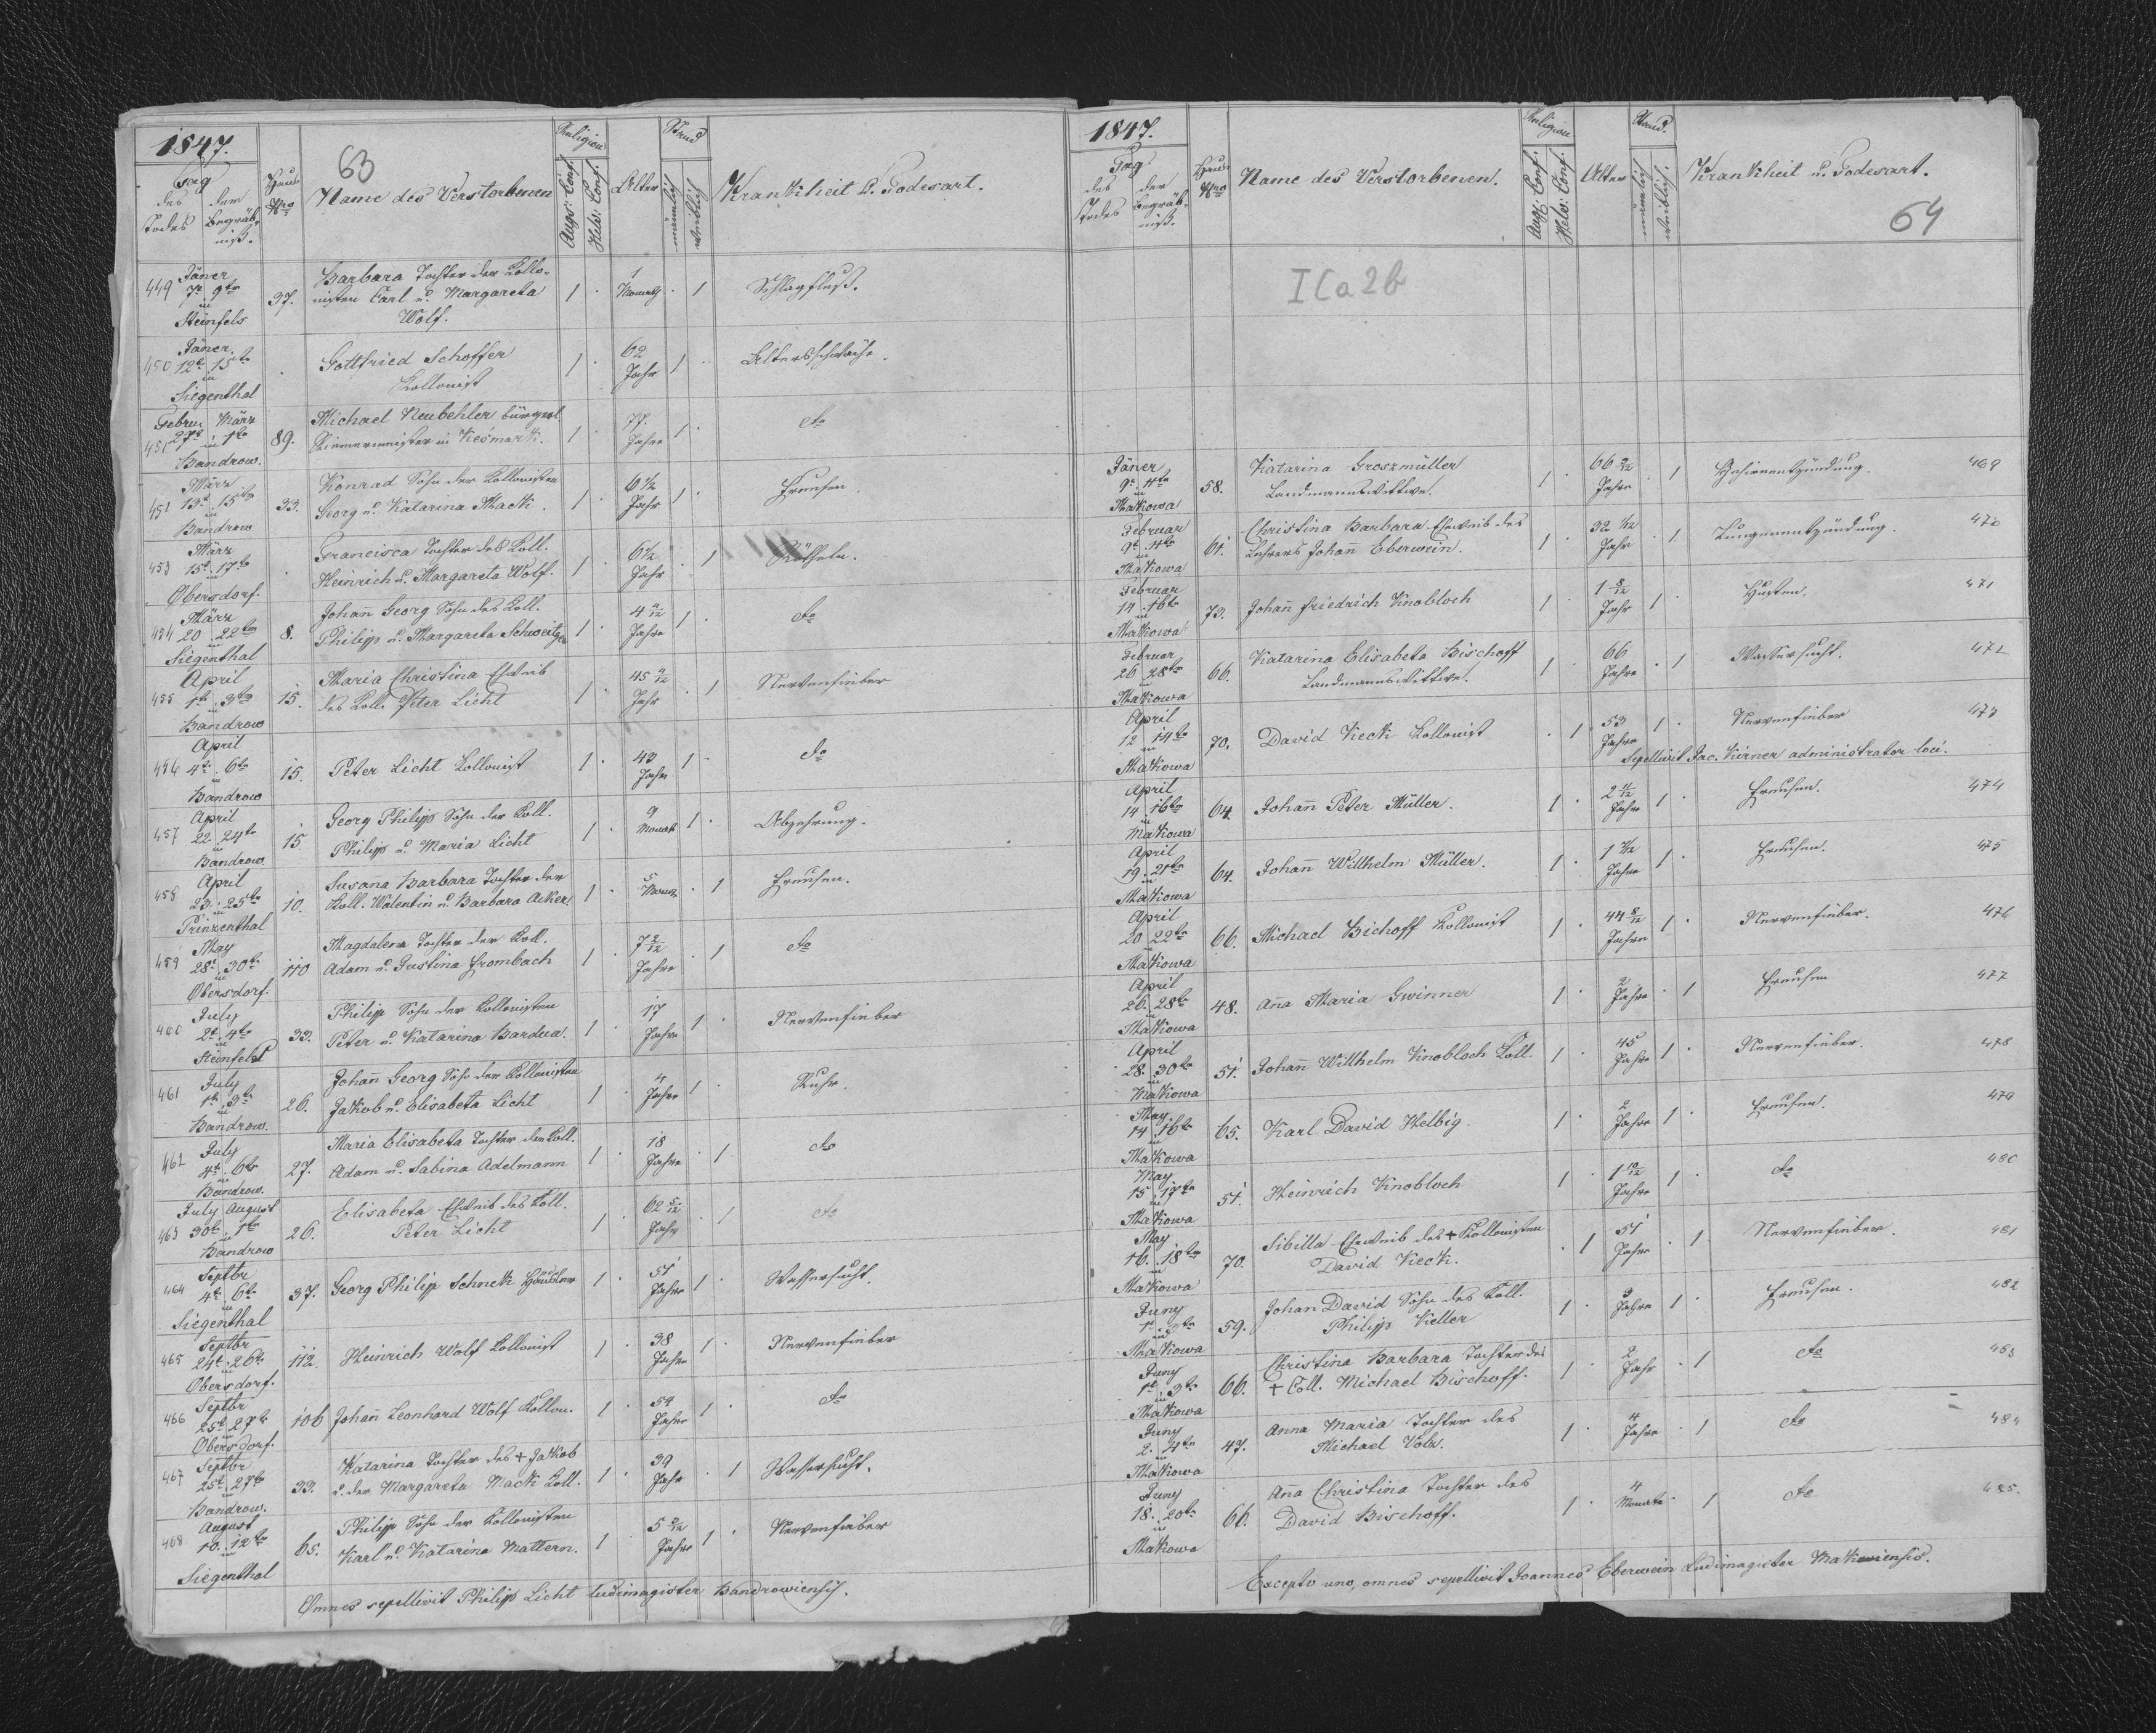 1847.
63
Tag
des Todes
der Begräbniß.
Haus Nro
Name des Verstorbenen
Religion
Augs: Conf:
Helv: Conf:
Alter
Stand
männlich
weiblich
Krankheit u. Todesart.
449 Jäner 7t 9te in Steinfels
37.
Barbara Tochter der Kollo-
nisten Carl u. Margareta
Wolf.
1 .
1 Monath
. 1
Schlagfluß.
450 Jäner 12t 15te in Siegenthal
.
Gottfried Schoffer
Kollonist
1 .
62 Jahr
1 .
Altersschwäche.
451 Febru März 27t in 1te Bandrow.
89.
Michael Neubehler bürgerl.
Riemermeister in Kesmark.
1 .
77. Jahre
1 .
do
451 März 13t 15te in Bandrow
33.
Konrad Sohn der Kollonisten
Georg u. Katarina Mack.
1 .
6½ Jahr
1 .
Fraisen.
453 März 15t 17te in Obersdorf.
.
Francisca Tochter des Koll.
Heinrich u. Margareta Wolf.
1 .
6½ Jahr
. 1
Rötheln.
454 März 20 22ten in Siegenthal
8.
Johann Georg Sohn des Koll.
Philipp u. Margareta Schweitzer
1 .
Jahre
1 .
do
455 April 1te 3te in Bandrow
15.
Maria Christina Eheweib
des Koll. Peter Licht
1 .
Jahr
. 1
Nervenfieber
456 April 4te 6te in Bandrow
15.
Peter Licht Kollonist
1 .
43 Jahr
1 .
do
457 April 22. 24te Bandrow
15
Georg Philipp Sohn der Koll.
Philipp u. Maria Licht
1 .
9 Monath
1 .
Abzehrung.
458 April 23. 25te in Prinzenthal
10.
Susana Barbara Tochter der
Koll. Walentin u. Barbara Acker
1 .
5 Monath
. 1
Fraisen.
459 May 28t 30te in Obersdorf.
110
Magdalena Tochter der Koll.
Adam u. Justina Frombach
1 .
7 2/12 Jahre
. 1
do
460 July 2t 4te in Steinfels
33.
Philipp Sohn der Kollonisten
Peter u. Katarina Bardua.
1 .
17 Jahre
1 .
Nervenfieber
461 July 1te 3te in Bandrow.
26.
Johann Georg Sohn der Kollonisten
Jakob u. Elisabeta Licht
1 .
4 Jahre
1 .
Ruhr.
462 July 4te 6te in Bandrow.
27.
Maria Elisabeta Tochter der Koll.
Adam u. Sabina Adelmann
1 .
18 Jahre
. 1
do
463 July August 30te 1te in Bandrow
26.
Elisabeta Eheweib des Koll.
Peter Licht
1 .
62 5/12 Jahr
. 1
do
464 Septbr 4te 6te in Siegenthal
37.
Georg Philipp Schneck Häusler
1 .
51 Jahre
1 .
Wassersucht.
465 Septbr 24t 26te in Obersdorf.
112.
Heinrich Wolf Kollonist
1 .
38 Jahre
1 .
Nervenfieber
466 Septbr 25t 27te in Obersdorf.
106
Johann Leonhard Wolf Kollon.
1 .
54 Jahre
1 .
do
467 Septbr 25t 27te in Bandrow.
33.
Katarina Tochter des + Jakob
u. der Margareta Mack Koll.
1 .
39 Jahr
. 1
Wassersucht.
468 August 10. 12te in Siegenthal
65.
Philipp Sohn der Kollonisten
Karl u. Katarina Mattern.
1 .
Jahre
1 .
Nervenfieber
Omnes sepellivit Philipp Licht ludimagister Bandrowiensis.
1847.
Tag
des Todes
der Begräbniß.
Haus Nro
Name des Verstorbenen.
Religion
Augs: Conf:
Helv: Conf:
Alter
Stand.
männlich
weiblich.
Krankheit u. Todesart.
64
I Ca 2b
Jäner 9t 11te in Makowa
58.
Katarina Groszmüller
Landmannswittwe.
1 .
Jahre
. 1
Gehirnentzündung.
469
Februar 9t 11te in Makowa
61.
Christina Barbara Eheweib des
Lehrers Johann Eberwein.
1 .
Jahr
. 1
Lungenentzündung.
470
Februar 14 16te in Makowa
73.
Johann friedrich Knobloch
1 .
1 8/12 Jahr
1 .
Husten.
471
Februar 26 28te in Makowa
66.
Katarina Elisabeta Bischoff
Landmannswittwe.
1 .
66 Jahre
. 1
Wassersucht.
472
April 12 14te in Makowa
70.
David Kieck Kollonist
. 1
53 Jahre
1 .
Nervenfieber
473
Sepellivit Jac. Kirner administrator loci.
April 14 16te in Makowa
64.
Johann Peter Müller.
1 .
Jahre
1 .
Fraisen.
474
April 19. 21te in Makowa
64.
Johann Willhelm Müller.
1 .
Jahre
1 .
Fraisen.
475
April 20 22te in Makowa
66.
Michael Bichoff Kollonist
1 .
44 8/12 Jahre
1 .
Nervenfieber.
476
April 26. 28te in Makowa
48.
Anna Maria Gwinner
1 .
2 Jahre
. 1
Fraisen
477
April 28. 30te in Makowa
51.
Johann Willhelm Knobloch Koll.
1 .
45 Jahre
1 .
Nervenfieber.
478
May 14 16te in Makowa
65.
Karl David Helbig.
1 .
2 Jahre
1 .
Fraisen.
479
May 15 17te in Makowa
51.
Heinrich Knobloch
1 .
1 10/12 Jahre
1 .
do
480
May 16. 18te in Makowa
70.
Sibilla Eheweib des + Kollonisten
David Kieck.
. 1
51 Jahre
. 1
Nervenfieber.
481
Juny in Makowa
59.
Johan David Sohn des Koll.
Philipp Keller
1 .
3 Jahre
1 .
Fraisen.
482
Juny 1te 3te in Makowa
66.
Christina Barbara Tochter des
+ Coll. Michael Bischoff.
1 .
2 Jahr
. 1
do
483
Juny 2. 4te in Makowa
47.
Anna Maria Tochter des
Michael Volz.
1 .
4 Jahre
. 1
do
484
Juny 18. 20te in Makowa
66.
Anna Christina Tochter des
David Bischoff.
1 .
4 Monate
. 1
do
485.
Excepto uno, omnes sepellivit Joannes Eberwein Ludimagister Makowiensis.